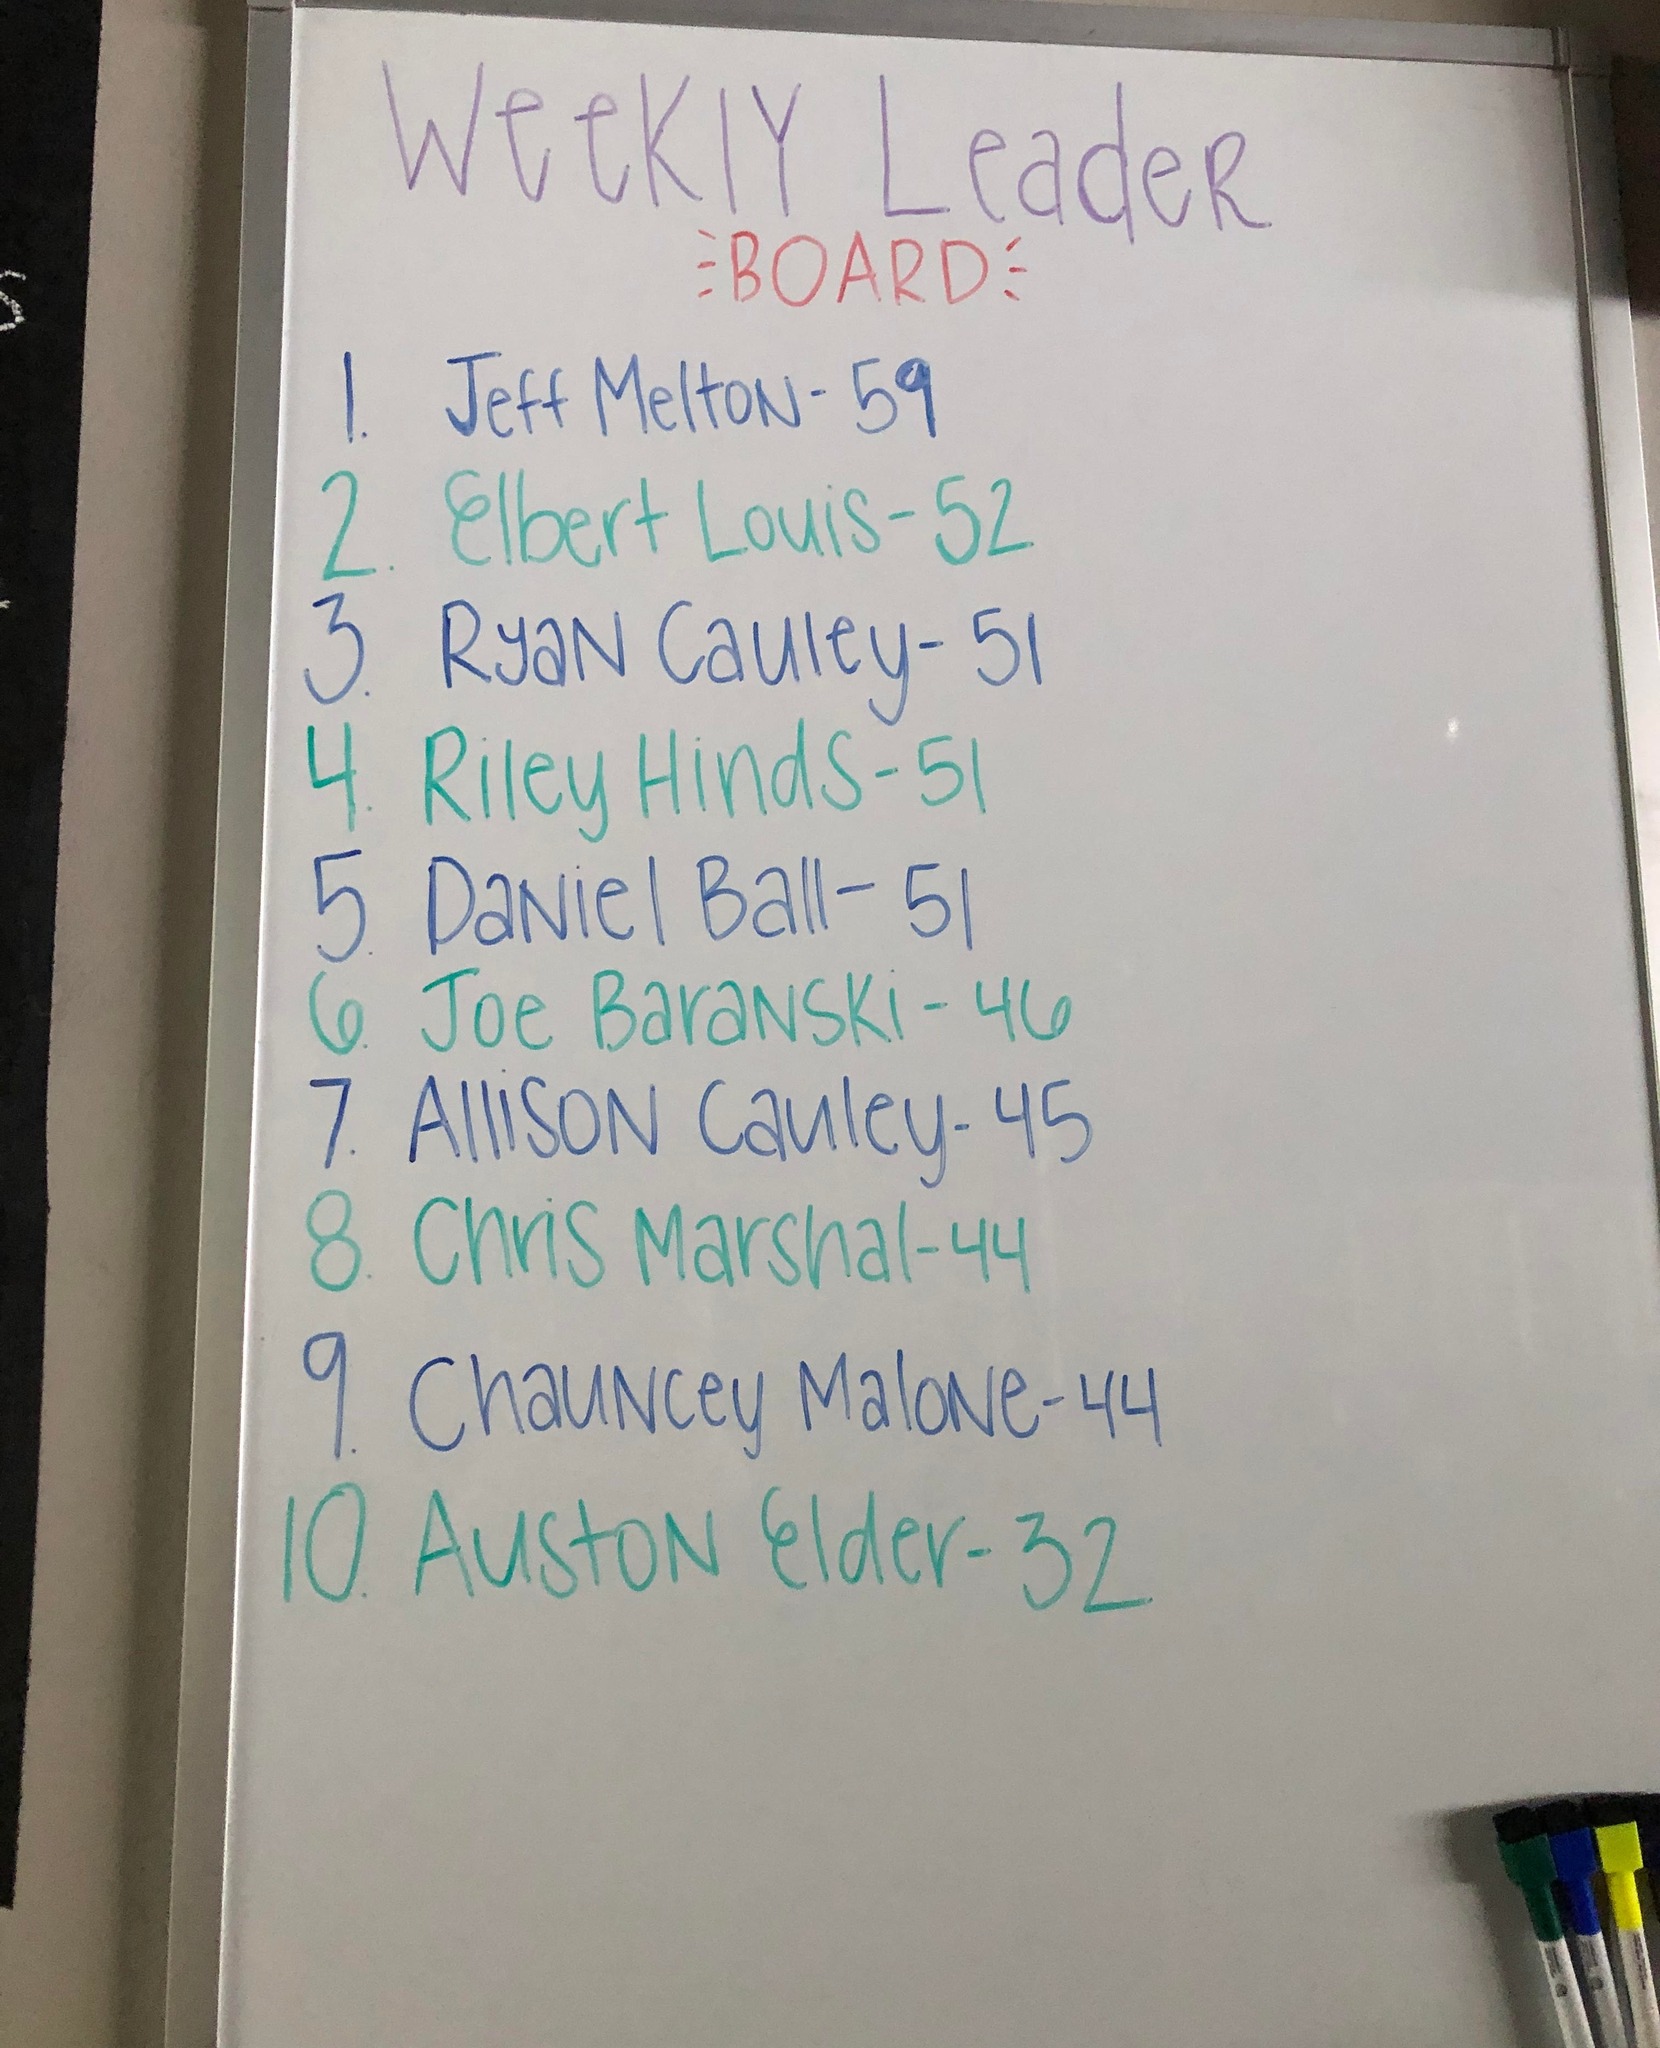 Weekly Leader
BOARD
1. Jeff Melton- 59
2. Elbert Louis- 52
3. Ryan Cauley- 51
4. Riley Hinds- 51
5. Daniel Ball- 51
6. Joe Baranski- 46
7. Allison Cauley- 45
8. Chris Marshal- 44
9. Chauncey Malone- 44
10. Auston Elder- 32